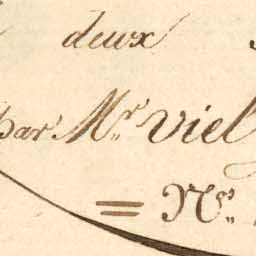 deux
par Mr. Viel
= Nos.